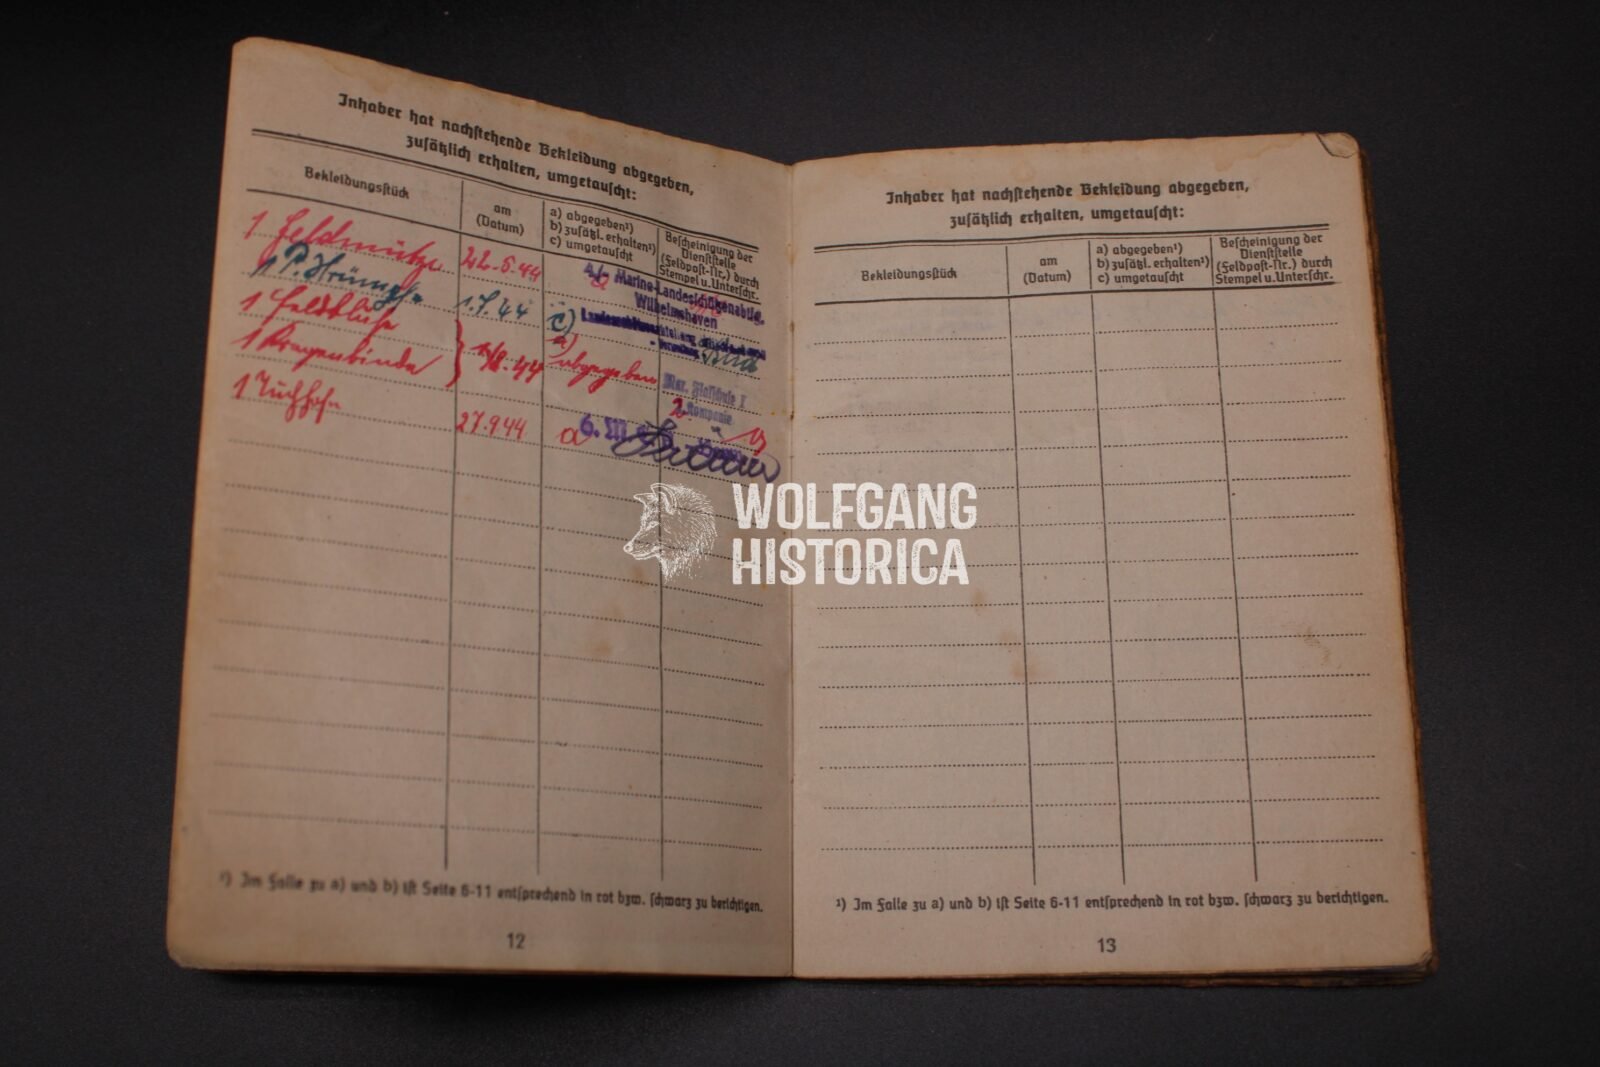 Inhaber hat nachstehende Bekleidung abgegeben,
zusätzlich erhalten, umgetauscht:
Bekleidungsstück
am
(Datum)
a) abgegeben¹)
b) zusätzl. erhalten¹)
c) umgetauscht
Bescheinigung der
Dienststelle
(Feldpost-Nr.) durch
Stempel u. Unterschr.
1 Feldmütze
22.6.44
Marine-Landesschützenabtlg.
Wilhelmshaven
1 P. Strümpfe
44
c)
1 Feldbluse
1 Kragenbinde
44
a)
abgegeben
Mar. Flakschule I
2. Kompanie
1 Tuchhose
27.9.44
a
6. M.
¹) Im Falle zu a) und b) ist Seite 6-11 entsprechend in rot bzw. schwarz zu berichtigen.
12
Inhaber hat nachstehende Bekleidung abgegeben,
zusätzlich erhalten, umgetauscht:
Bekleidungsstück
am
(Datum)
a) abgegeben¹)
b) zusätzl. erhalten¹)
c) umgetauscht
Bescheinigung der
Dienststelle
(Feldpost-Nr.) durch
Stempel u. Unterschr.
¹) Im Falle zu a) und b) ist Seite 6-11 entsprechend in rot bzw. schwarz zu berichtigen.
13
WOLFGANG
HISTORICA